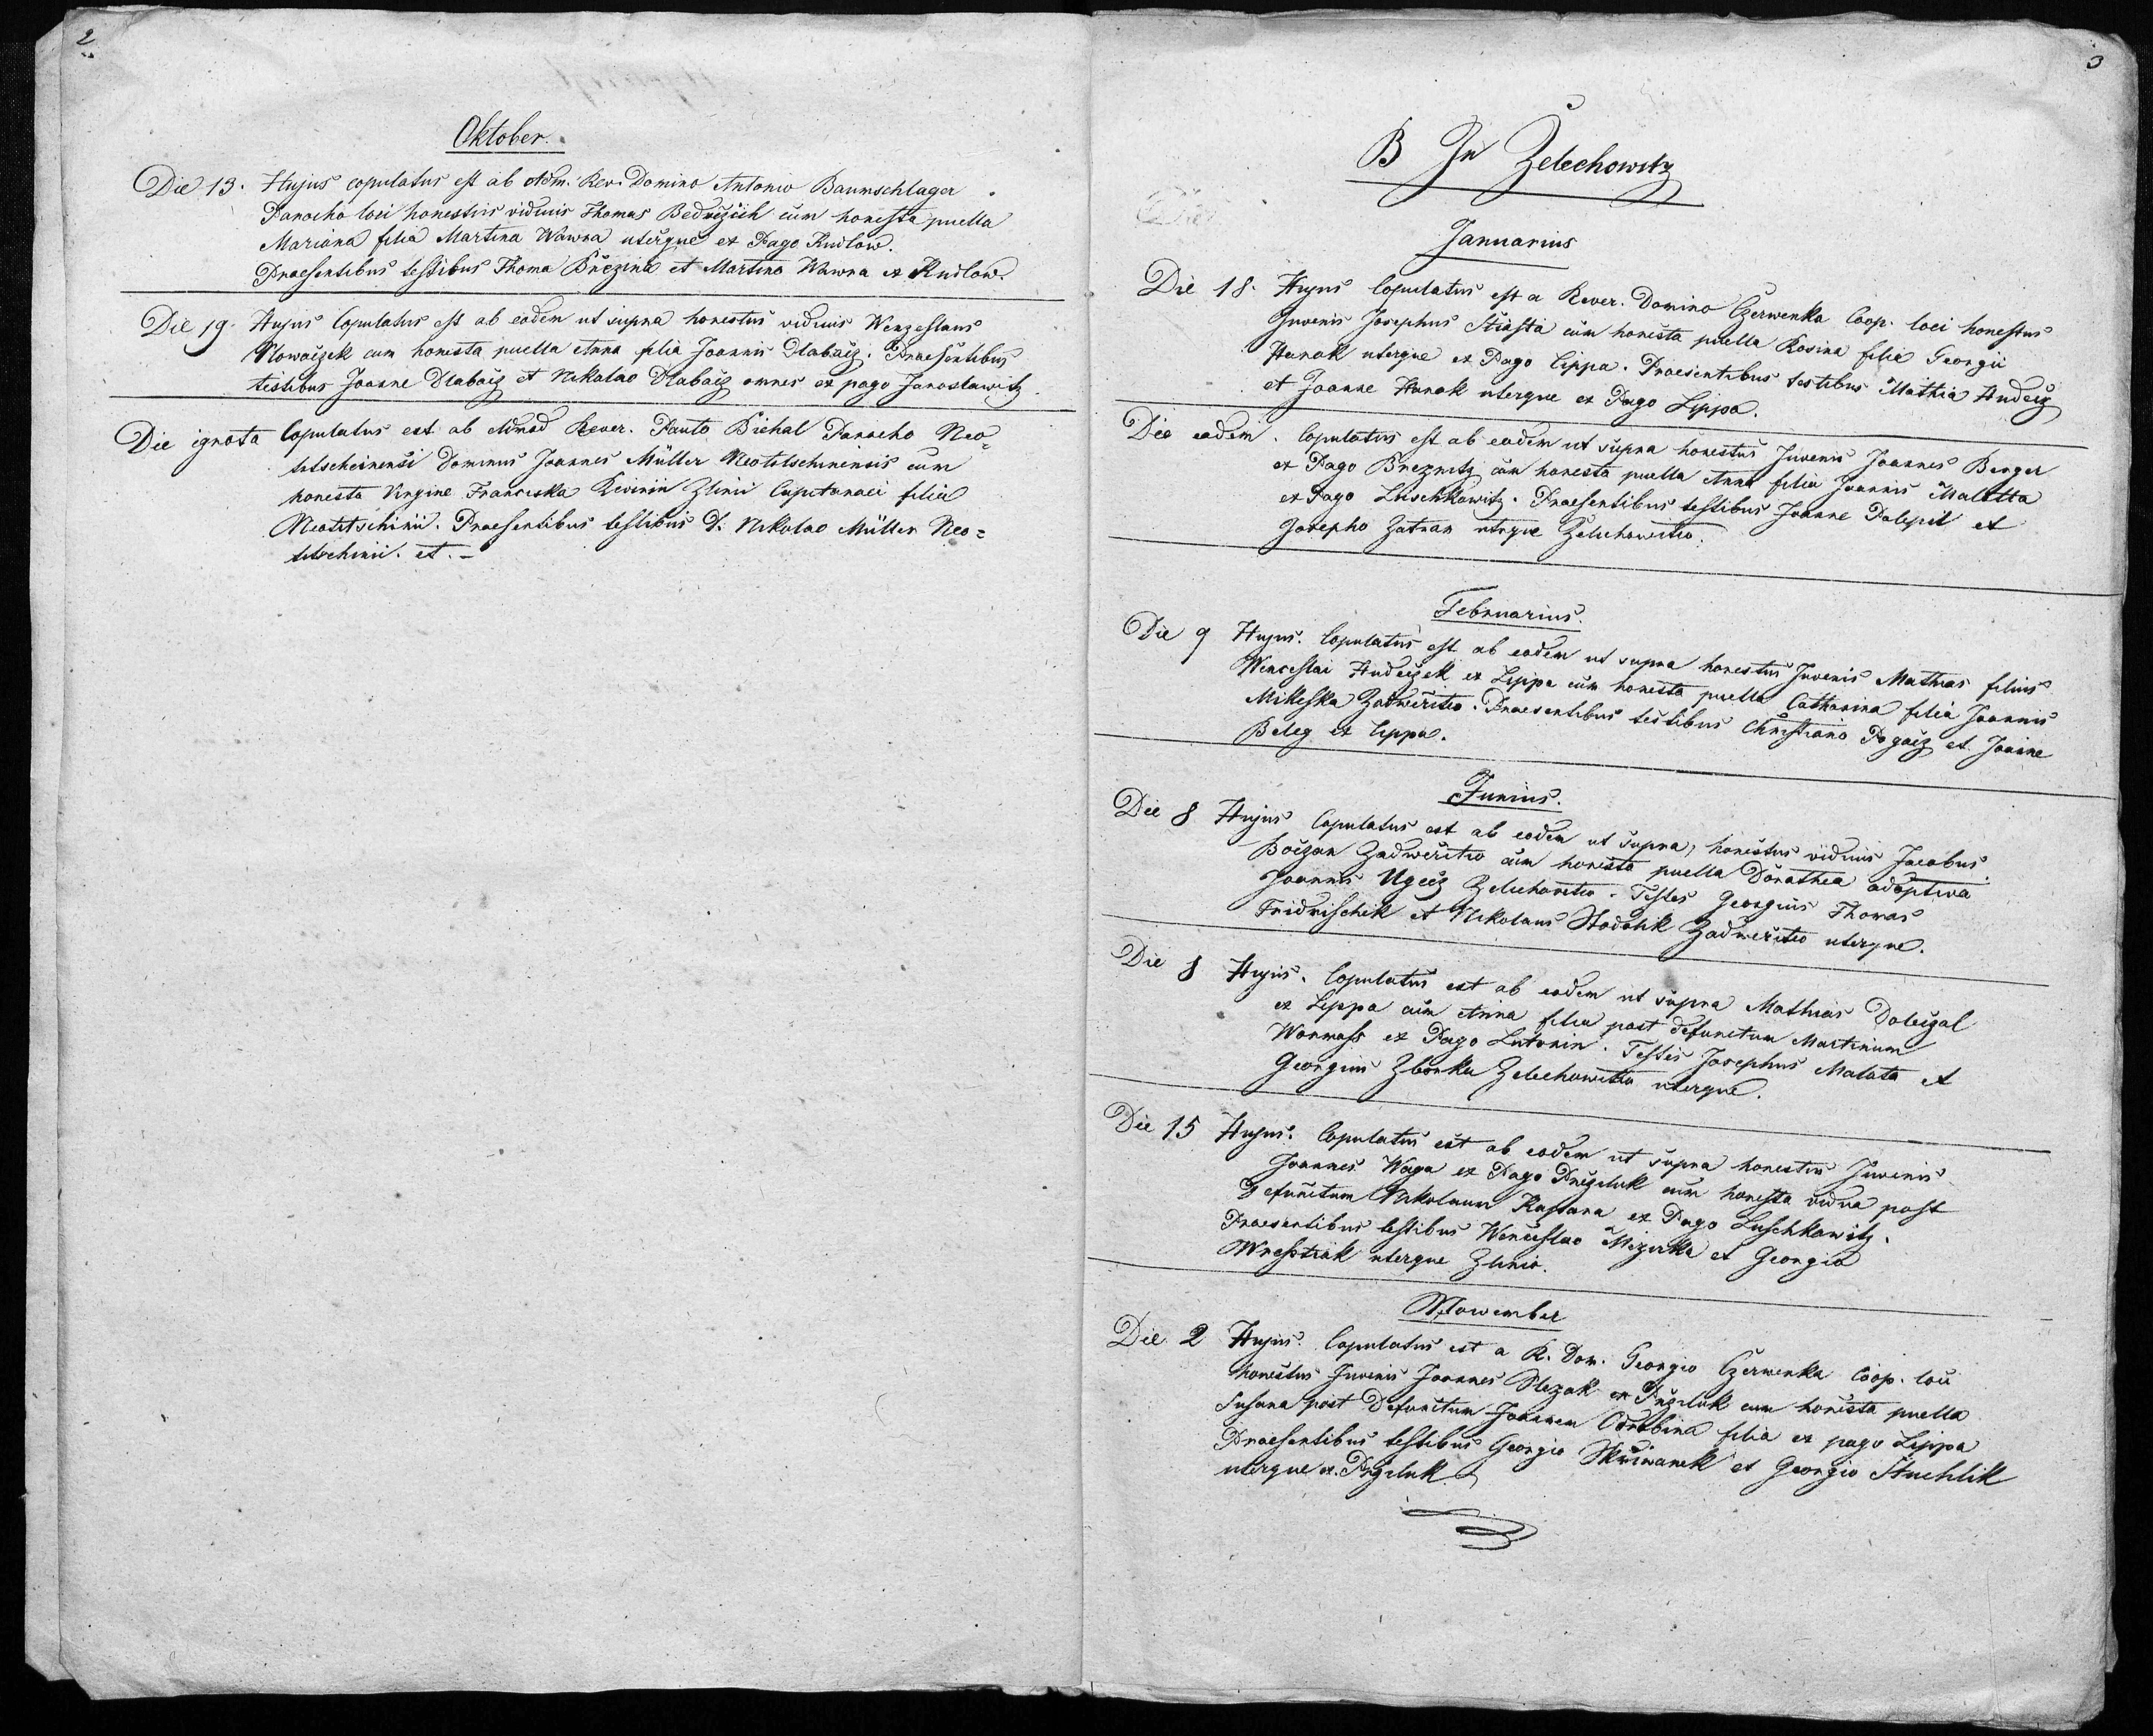 2
Oktober.
Die 13. Hujus copulatus est ab Adm. Rev. Domino Antonio Baumschlager
Parocho loci honestus viduus Thomas Bednržich cum honesta puella
Mariana filia Martina Wawra uterque ex Pago Kudlow.
Praesentibus testibus Thoma Březina et Martino Wawra ex Kudlow.
Die 19. Hujus Copulatus est ab eodem ut supra honestus viduus Wenzeslaus
Nowáčzek cum honesta puella Anna filia Joannis Dlabáčz. Praesentibus
testibus Joanne Dlabáčz et Nikolao Dlabáčz omnes ex pago Jaroslawitz
Die ignota Copulatus est ab Rever. Paulo Bichal Parocho Neo=
titscheinensi Dominus Joannes Müller Neotitscheinensis cum
honesta Virgine Franciska Zlinii Capitanaei filia
Neotitschinii. Praesentibus testibus D. Nikolao Müller Neo=
titschinii. et. –
3
B In Želechowitz
Januarius
Die 18. Hujus Copulatus est a Rever. Domino Czerwenka Coop. loci honestus
Juvenis Josephus Stiasta cum honesta puella Rosina filia Georgii
Hanak uterque ex Pago Lippa. Praesentibus testibus Mathia Hudecz
et Joanne Hanak uterque ex Pago Lippa.
Die eadem. Copulatus est ab eodem ut supra honestus Juvenis Joannes Berger
ex Pago Brezuwitz cum honesta puella Anna filia Joannis Malotta
ex Pago Luschkowitz. Praesentibus testibus Joanne Polepil et
Josepho Zatran utrque Zelechowitio.
Februarius.
Die 9 Hujus. Copulatus est ab eodem ut supra honestus Juvenis Mathias filius
Wenceslai Hudeczek ex Lippa cum honesta puella Catharina filia Joannis
Mikeska Zadweřitio. Praesentibus testibus Christiano Pogacz et Joanne
Beleg ex Lippa.
Junius.
Die 8 Hujus Copulatus est ab eodem ut supra, honestus viduus Jacobus
Boczan Zadweřitio cum honesta puella Dorathea adoptiva
Joannis Ugecz Zelechowitio. Testes Georgius Thomas
Fridrischik et Nikolaus Stodolik Zadweřitio uterque.
Die 8 Hujus. Copulatus est ab eodem ut supra Mathias Doležal
ex Lippa cum Anna filia post defunctum Martinum
Wormass ex Pago Lutonin. Testes Josephus Malota et
Georgius Zbonka Zelechowitio uterque.
Die 15 Hujus: Copulatus est ab eodem ut supra honestus Juvenis
Joannes Waga ex Pago Pržiluk cum honesta vidua post
Defunctum Nikolaum Kastana ex Pago Luschkowitz.
Praesentibus testibus Wenceslao Mizerka et Georgio
Wrestiak uterque Zlinio.
Nowember
Die 2 Hujus. Copulatus est a R. Dom. Georgio Czerwenka Coop. loci
honestus Juvenis Joannes Slezak ex Pržiluk cum honesta puella
Susana post Defunctum Joannem Odrobina filia ex pago Lippa
Praesentibus testibus Georgio Skřiwanek et Georgio Stuchlik
uterque ex Pržiluk